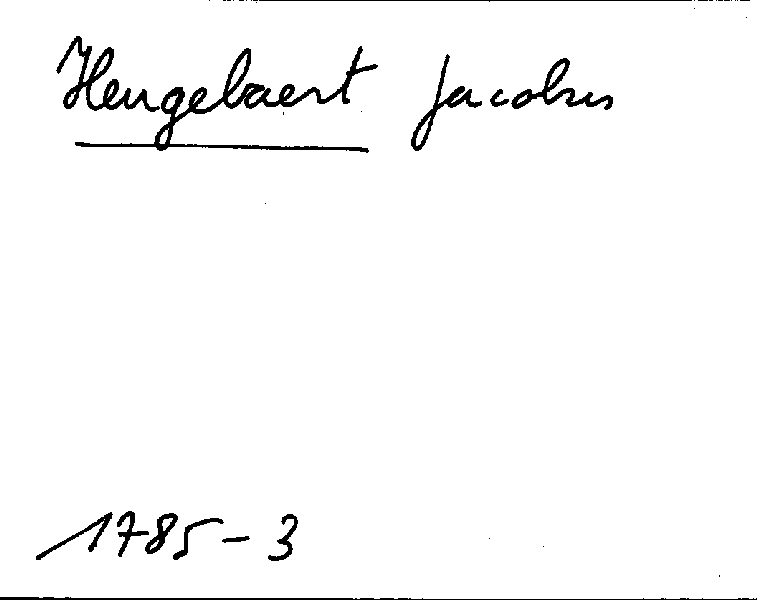 Heugebaert Jacobus
1785-3